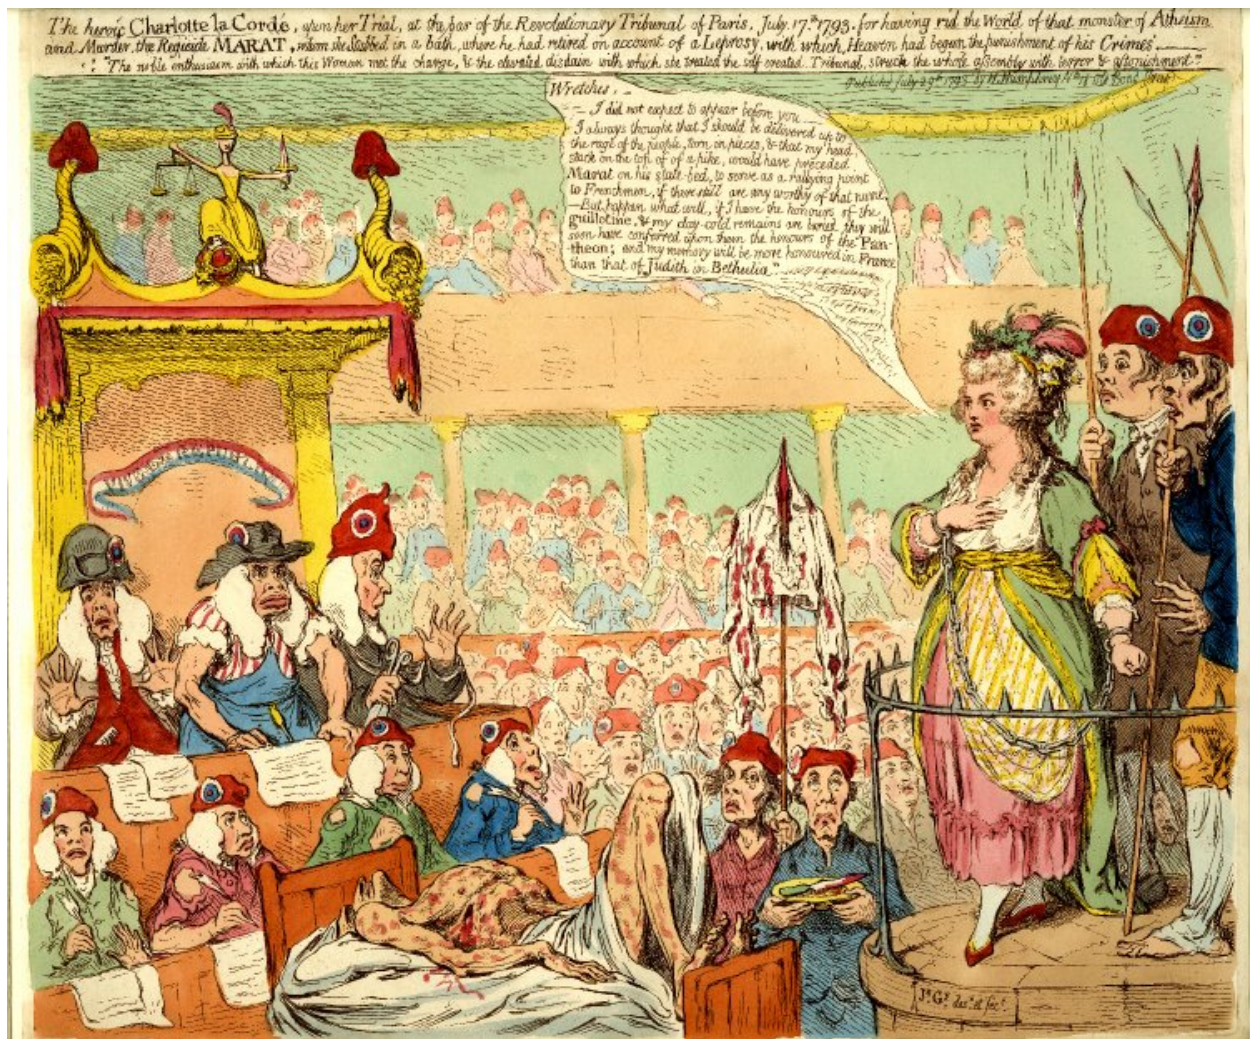 The heroic Charlotte la Cordé, upon her Trial, at the bar of the Revolutionary Tribunal of Paris, July 17th 1793. for having rid the World of that monster of Atheism
and Murder, the Regicide MARAT, whom she Stabbed in a bath, where he had retired on account of a Leprosy, with which, Heaven had begun the punishment of his Crimes.
"The noble enthusiasm with which this Woman met the charge, & the elevated disdain with which she treated the self created Tribunal, struck the whole assembly with terror & astonishment."
Publishd July 29th 1793 by H. Humphrey No 18 Old Bond Street
Wretches,
— I did not expect to appear before you —
I always thought that I should be delivered up to
the rage of the people, torn in pieces, & that my head,
stuck on the top of of a pike, would have preceded
Marat on his state-bed, to serve as a rallying point
to Frenchmen, if there still are any worthy of that name.
— But, happen what will, if I have the honours of the
guillotine, & my clay-cold remains are buried, they will
soon have conferred upon them the honours of the Pan-
theon; and my memory will be more honoured in France
than that of Judith in Bethulia."
Js Gy des. et fect.